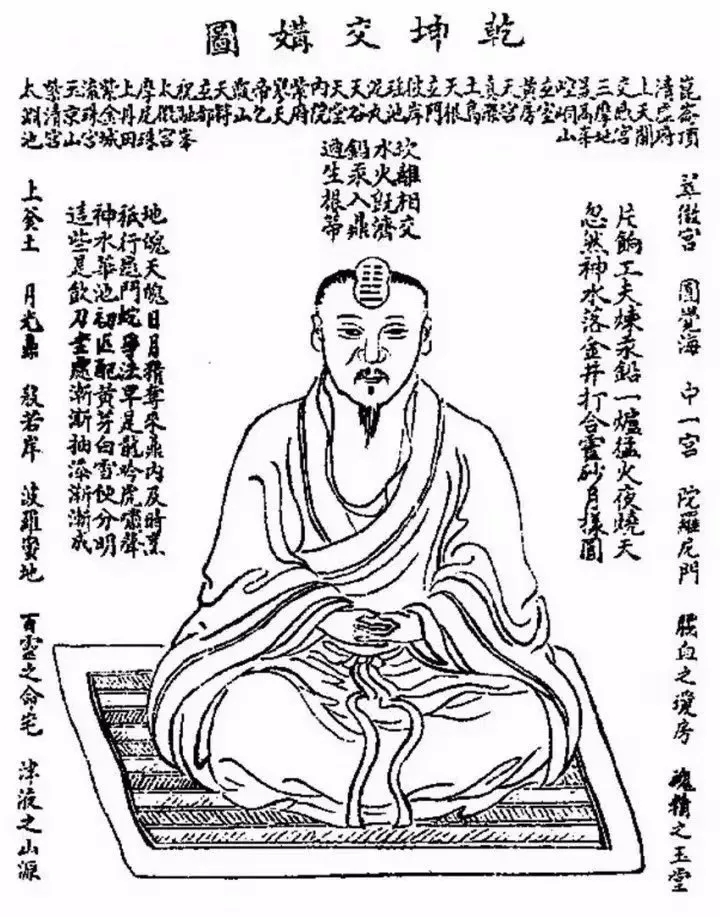 乾坤交媾圖
崑崙頂
清虛府
上天關
交感宮
三摩地
最高峯
崆峒山
玄室
黃房
天宮
天根
玄門
彼岸
瑤池
泥丸
天谷
天堂
內院
紫府
寥天
帝乙
甑山
天符
玄都
祝融峯
太微宮
摩尼珠
上丹田
紫金城
流珠宮
玉京山
紫清宮
太淵池
翠微宮 圓覺海 中一宮 陀羅尼門 腦血之瓊房 魂精之玉堂
片餉工夫煉汞鉛一爐猛火夜燒天
忽然神水落金井打合靈砂月樣圓
坎離相交
水火既濟
鉛汞入鼎
適生根蒂
地魄天魂日月精奪來鼎內及時烹
祇行龜鬥蛇爭法早是龍吟虎嘯聲
神水華池初匹配黃芽白雪便分明
這些是飲刀圭處漸漸抽添漸漸成
上釜土 月光鼎 般若岸 波羅蜜地 百靈之命宅 津液之山源